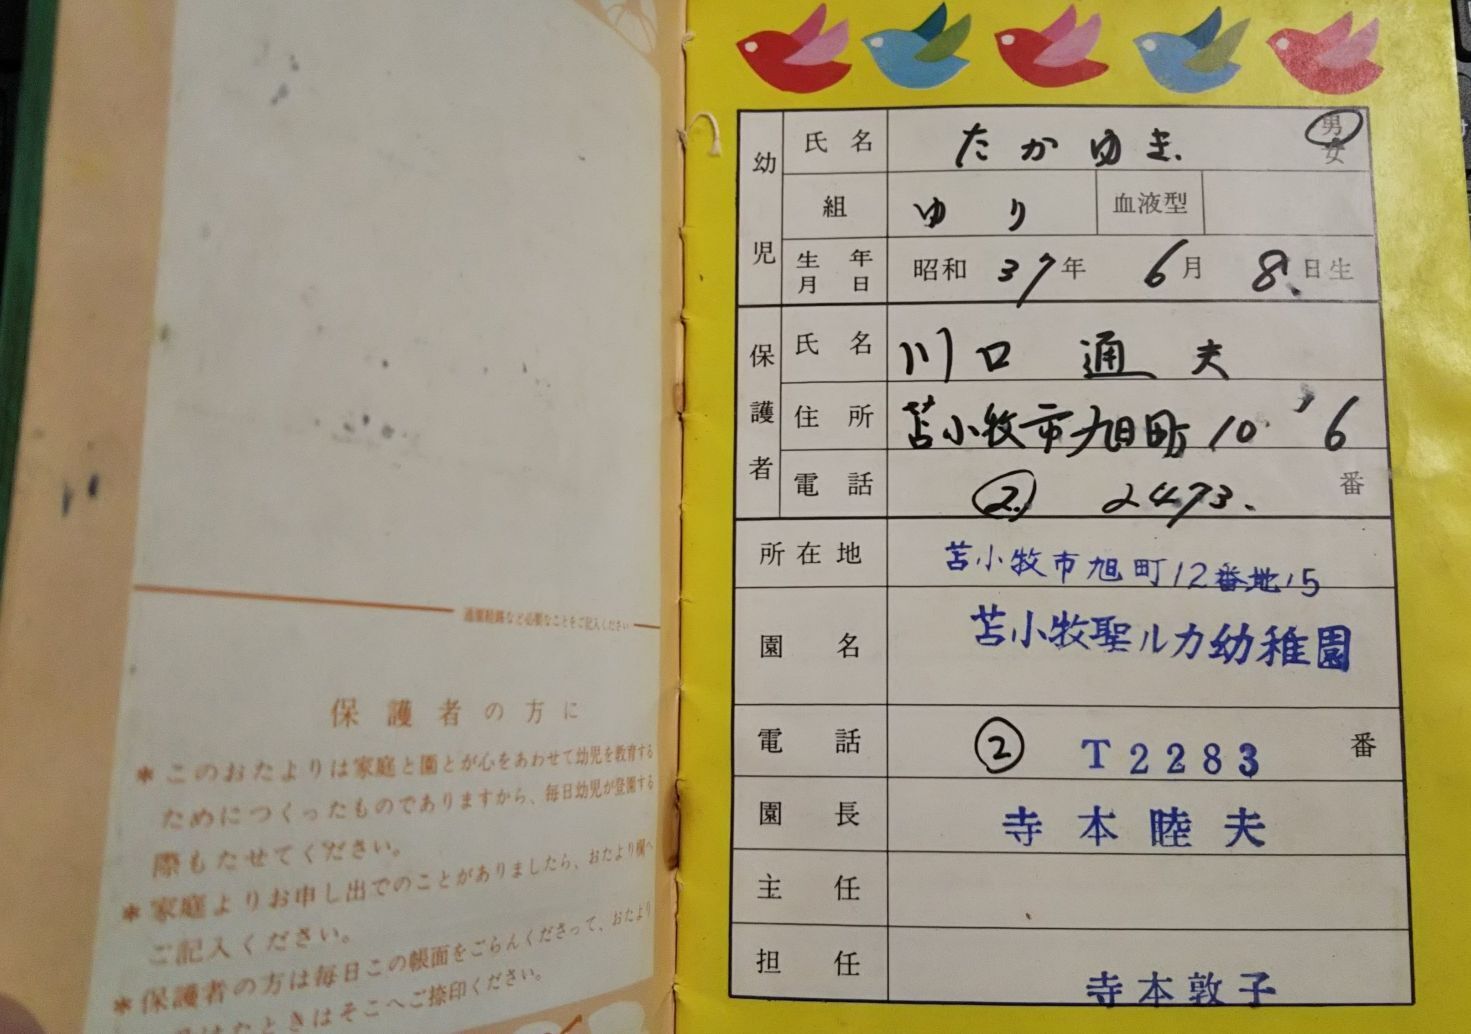 通園経路など必要なことをご記入ください
保護者の方に
＊このおたよりは家庭と園とが心をあわせて幼児を教育する
ためにつくったものでありますから、毎日幼児が登園する
際もたせてください。
＊家庭よりお申し出でのことがありましたら、おたより欄へ
ご記入ください。
＊保護者の方は毎日この帳面をごらんくださって、おたより
たときはそこへご捺印ください。
幼児
氏名 たかゆき. 男 女
組 ゆり 血液型
生年月日 昭和 37年 6月 8日生
保護者
氏名 川口 通夫
住所 苫小牧市旭町10'6
電話 ② 2473. 番
所在地 苫小牧市旭町12番地15
園名 苫小牧聖ルカ幼稚園
電話 ② T2283 番
園長 寺本睦夫
主任
担任 寺本敦子